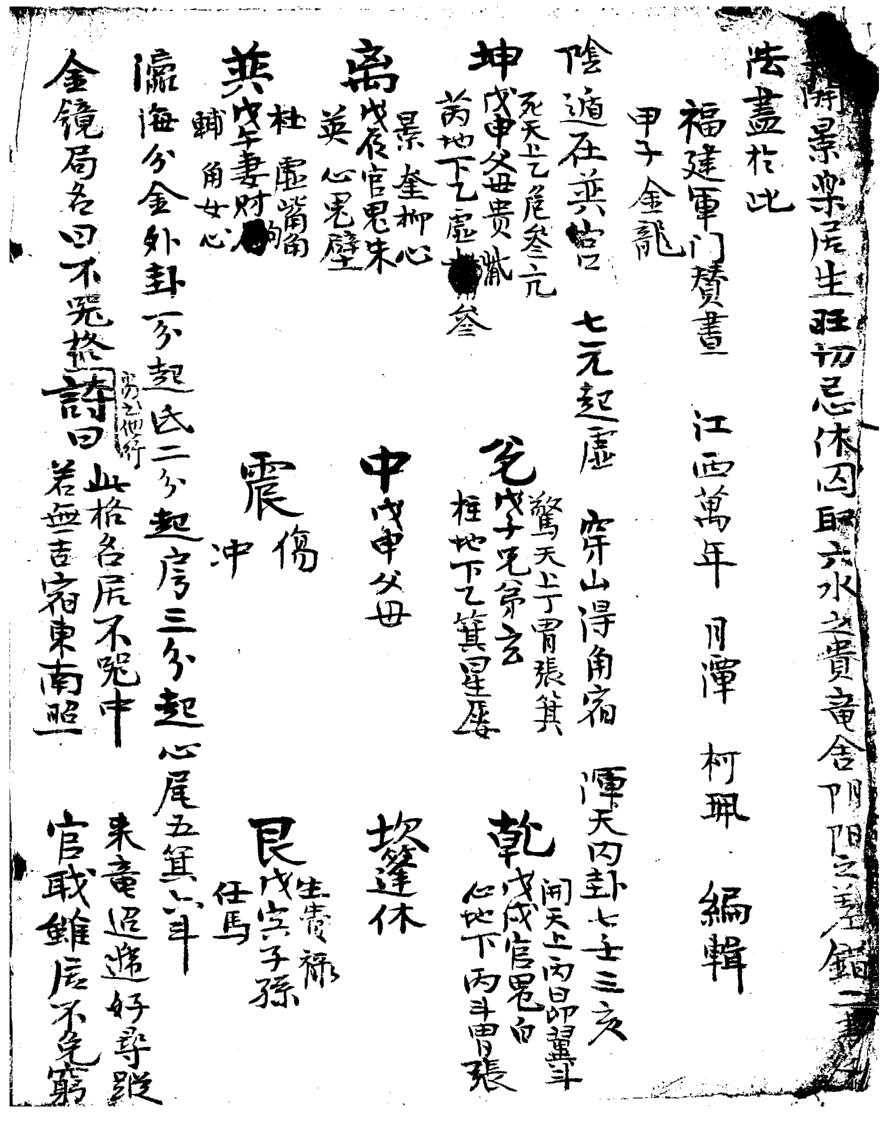 開景樂居生旺切忌休囚取六水之貴竜舍阴阳之差錯二書
法盡於此
福建軍门賛畫　江西萬年　月潭　柯珮　編輯
甲子金龍
陰遁在㢲宮　七元起虛　穿山得角宿　渾天内卦七壬三亥
坤
死天上乙危參亢
戊申父母贵
芮地下乙虛參
兊
驚天上丁胃張箕
戊子兄弟玄
柱地下乙箕星婁
乾
開天上丙昴翼斗
戊戌官鬼白
心地下丙斗胃張
离
景奎柳心
戊辰官鬼朱
英心鬼壁
中
戊申父母
坎
篷休
㢲
杜虛觜角
戊午妻财
輔角女心
震
傷
冲
艮
生贵禄
戊寅子孫
任馬
瀛海分金外卦一分起氐二分起房三分起心尾五箕六斗
金镜局名曰不兕格
詩曰
此格名居不兕中　来竜迢遞好尋蹤
若無吉宿東南照　官职雖居不免窮